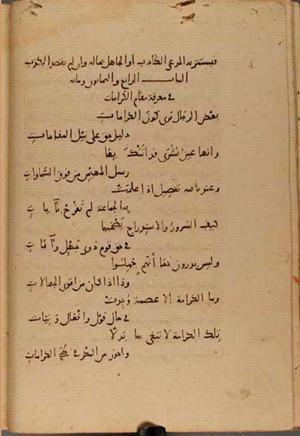 فيستفزه المدعي الكاذب او الجاهل بماله وان لم يقصد الكذب
الباب الرابع والثمانون ومائة
في معرفة مقام الكرامات
بعض الرجال يرى كون الكرامات
دليل حق على نيل المقامات
وانها عين بشرى قد اتتك بها
رسل المهيمن من فوق السماوات
وعندنا فيه تفصيل اذا علمت
به الجماعة لم تفرح بآيات
كيف السرور والاستدراج يصحبها
في حق قوم ذوي جهل وآفات
وليس يدرون حقا انهم جهلوا
وذا اذا كان من اقوى الجهالات
وما الكرامة الا عصمة وجدت
في حال قول وافعال ونيات
تلك الكرامة لا تبغي بها بدلا
واحذر من المكر في طي الكرامات